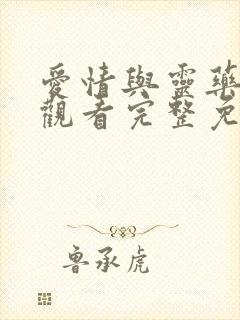 愛情與靈藥
觀看完整免
魯承虎